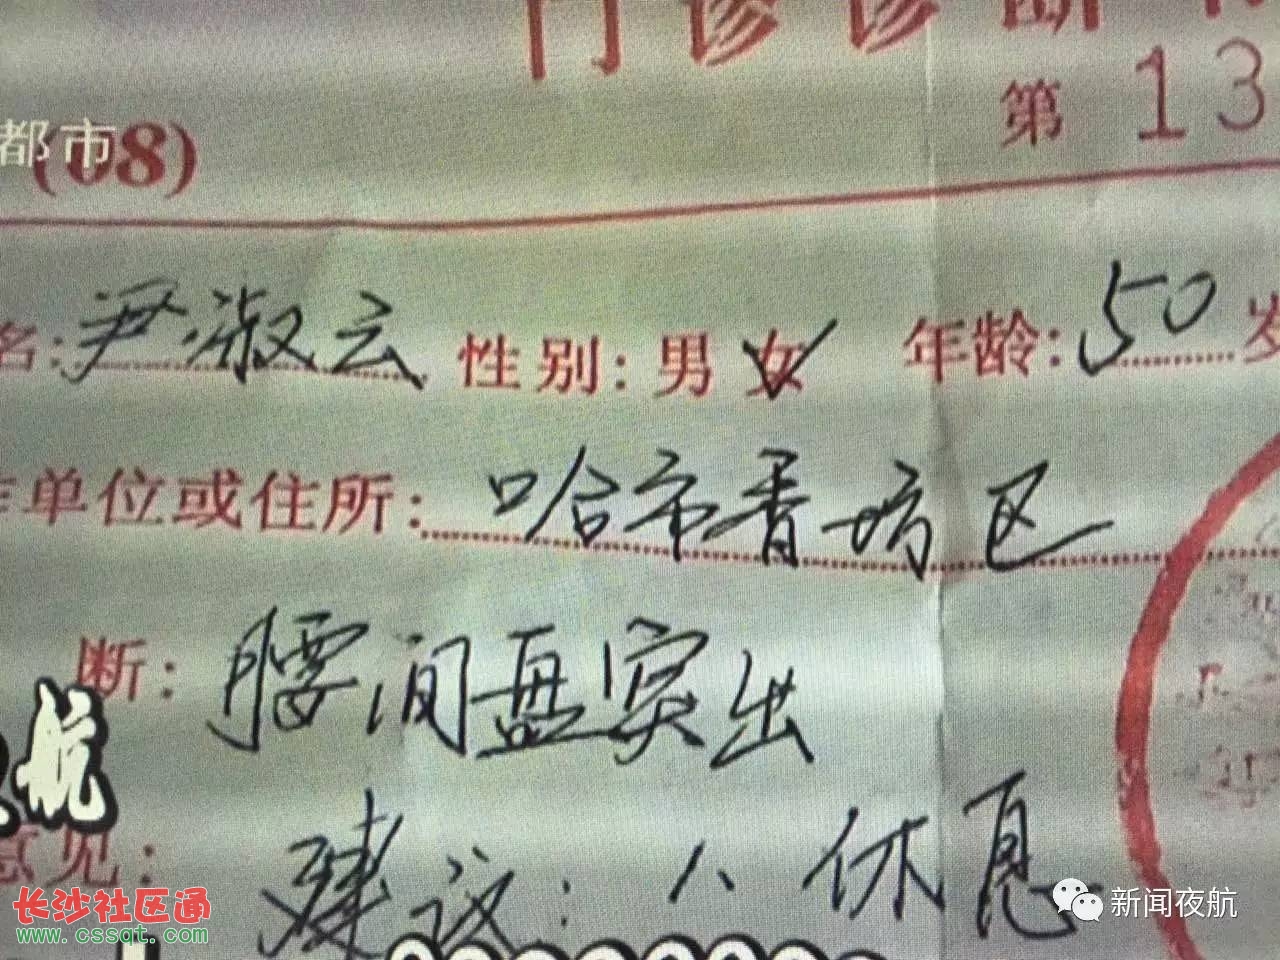 门诊诊断
都市
(08)
第 13
名: 尹淑云 性别: 男 女 年龄: 50 岁
单位或住所: 哈市香坊区
断: 腰间盘突出
航
意见: 建议: 1、休息
长沙社区通
www.cssqt.com
新闻夜航